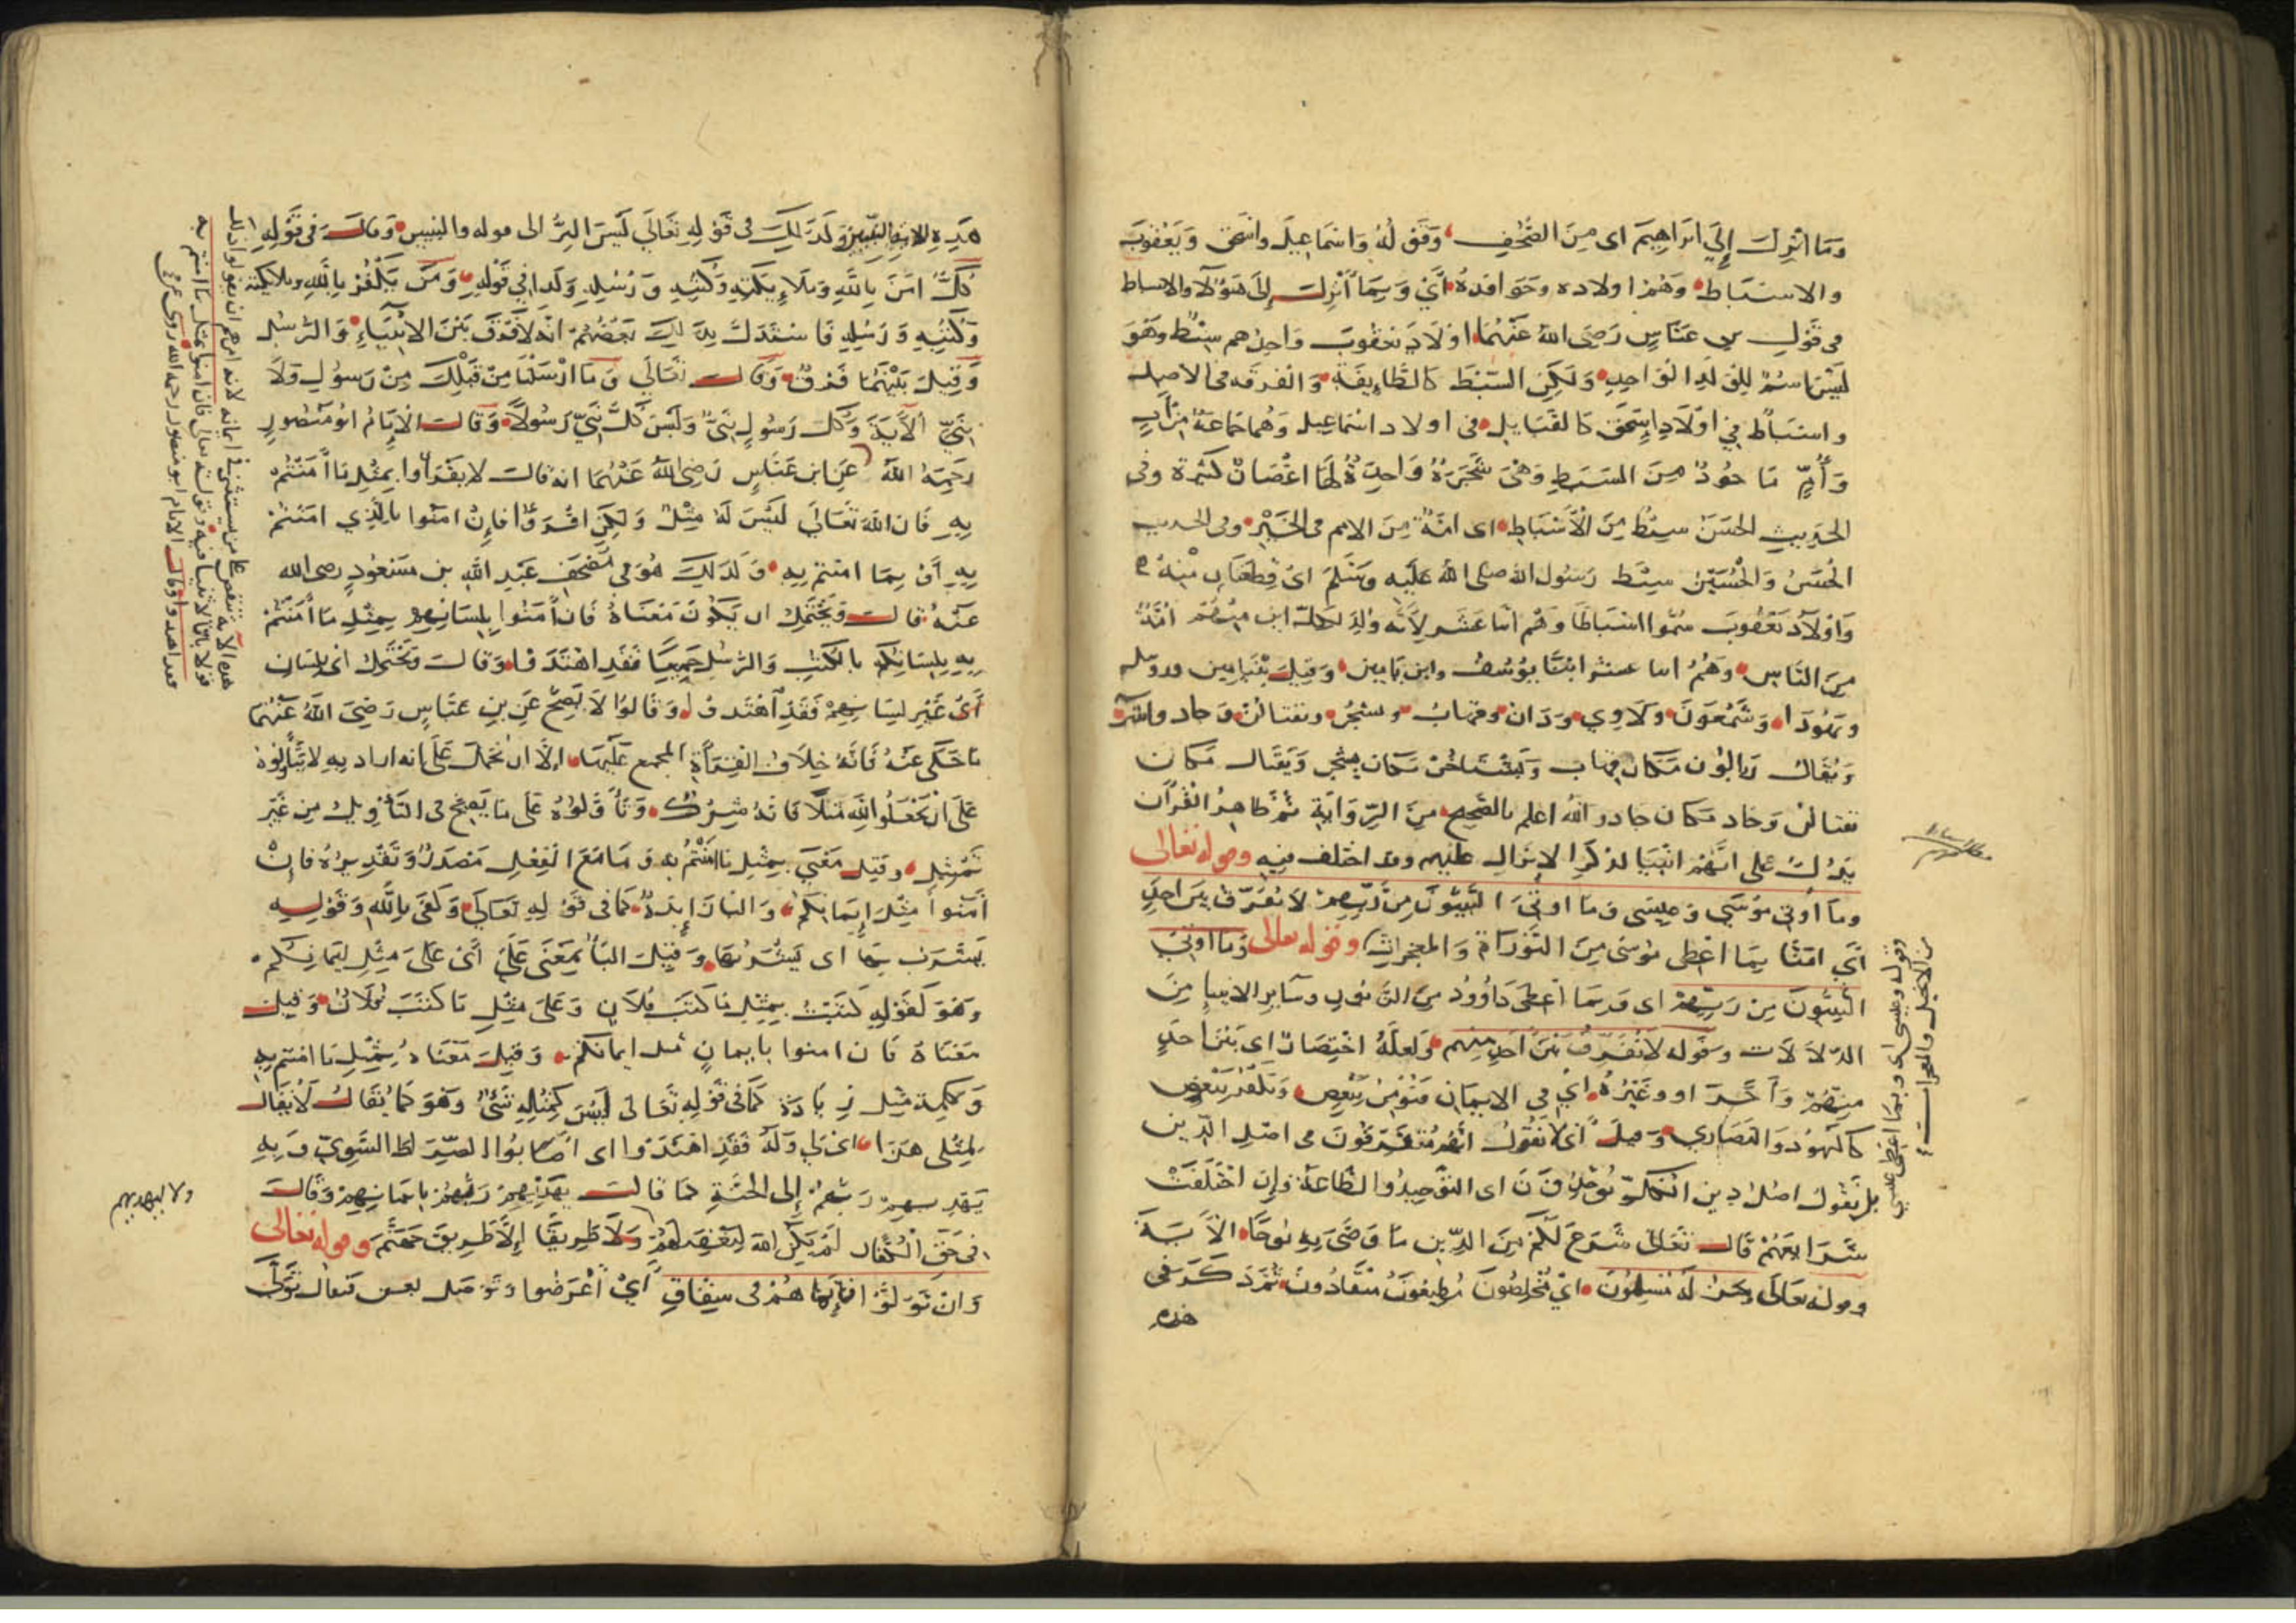 وَمَا انْزِلَ إِلَى ابْرَاهِيمَ اى مِنَ الصُّحُفِ وَقَوْلُهُ وَاسْمَاعِيلَ وَاسْحَقَ وَيَعْقُوبَ
والاسْبَاط وَهُمْ اولاده وحوافده أَيْ وَبِمَا أُنْزِلَ إِلَى هَؤُلَآ والاسباط
فى قَوْلِ بن عَبَّاسٍ رَضِىَ اللهُ عَنْهُمَا اوْلَادَ يَعْقُوبَ وَاحِدُهم سِبْطٌ وَهُوَ
لَيْسَ اسْمٌ لِلْوَلَدِ الْوَاحِدِ وَلَكِنِ السِّبْط كَالطَّائِفَةِ وَالفرقه فى الاصل
واسْبَاطٌ فِي اوْلَادِ اسْحَقَ كَالقَبَايِلِ فى اولاد اسْمَاعِيل وَهُم جَمَاعَةٌ مِنْ أَبٍ
وَأُمٍّ مَا خُوذٌ مِنَ السَّبَطِ وَهْىَ شَجَرَةٌ وَاحِدَةٌ لَهَا اغْصَانٌ كَثِيرَة وفى
الحَدِيثِ الحَسَنُ سِبْطٌ مِنَ الْأَسْبَاطِ اى امَّةٌ مِنَ الامم فى الخَيْرِ وفى الحديث
الحَسَنُ وَالْحُسَيْنُ سِبْطَا رَسُولِ الله صلى اللهُ عَلَيْهِ وَسَلَّمَ اىْ قِطْعَتَانِ مِنْهُ
وَاوْلَادُ يَعْقُوبَ سُمُّوا اسْبَاطًا وَهُم اثنا عَشَر لِأَنَّهُ وُلِدَ لِكلّ ابن مِنْهُمْ امَّةٌ
مِنَ النَّاسِ وَهُمْ اثنا عشر ابْنًا يُوسُفُ وابن يَامِين وَقِيلَ بِنْيَامِين وروبيل
ويَهُودَا وَشَمْعُونَ وَلَاوِي وَدَان وقهاث ويشجر ونفتالن وَجاد واشر
وَيُقَالُ رَبَالُون مَكَان قهاث وَيَشْتَاخُن مَكان يشجر وَيُقَال مَكَان
نفتالن وَجاد مَكان جادو واللهُ اعلم بالصَّحِيحِ مِنَ الرِّوَايَةِ ثُمَّ ظَاهِرُ القُرْآن
يَدُلُّ عَلى انَّهُمْ انْبِيَا لذكر الانزال عليهم وقد اختلف فيه وقوله تعالى
وَمَا أُوتِىَ مُوسَى وَعِيسَى وَمَا اوتِىَ النَّبِيُّونَ مِنْ رَبِّهِمْ لَا نُفَرِّقُ بَيْنَ احَدٍ
أَيْ امَنَّا بِمَا اعْطِى مُوسَى مِنَ التَّوْرَاةِ وَالمعْجِزاتِ وقوله تعالى وَمَا اوتِىَ
النَّبِيُّونَ مِنْ رَبِّهِمْ اى وَبِمَا اعْطِىَ دَاوُودُ مِنَ الزبُورِ وسَايِرِ الانبيا مِنَ
الدّلَالَات وَقَوْله لَا نُفَرِّقُ بَيْنَ أَحَدٍ مِنْهم وَلَعَلَّهُ اخْتِصَارٌ اى بَيْنَ أحَدٍ
مِنْهُمْ وَآخَرَ او وَغَيْرُهُ أيْ فى الايمَانِ فَنُؤْمِنُ بِبَعْضٍ وَنَكْفُرُ بِبَعْضٍ
كَاليَهُودِ وَالنَّصَارَى وَقيلَ أىْ لَا نَقُولُ انَّهُمْ مُتَفَرِّقُونَ فى اصْلِ الدِّين
بل نَقُولُ اصْلُ دِين الْكُلِّ وَاحِدٌ اى التَوْحِيدُ والطَّاعَةُ وَإِن اخْتَلَفَتْ
شَرَايعُهُمْ قَالَ تَعَالَى شَرَعَ لَكُمْ مِنَ الدِّينِ مَا وَصَّى بِهِ نُوحًا الآيَةَ
وقوله تعَالَى وَنحنُ لَهُ مُسْلِمُونَ أىْ مُخْلِصُونَ مُطِيعُونَ مُنْقَادُونَ ثُمَّ ذَكَرَ فى
هذه
وقوله وعيسى اى وبمَا اعطى عيسى
من الانجيل والمعجزات
هَذِهِ الاية النَّبِيِّينَ وَكَذَلِكَ فى قَوْلِهِ تَعَالَى لَيْسَ البِرُّ الى قوله والنبيين وَقالَ فى قَوْلِهِ
كُلٌّ امَنَ بِاللَّهِ وَمَلَائِكَتِهِ وَكُتُبِهِ وَرُسُلِهِ وَكَذا فِي قَوْلِهِ وَمَنْ يَكْفُرْ بِاللَّهِ وملائكته
وَكُتُبِهِ وَرُسُلِهِ فَاسْتَدَلَّ بِذَلِكَ بَعْضُهُمْ انه لَا فَرْقَ بَيْنَ الانْبِيَاءِ وَالرُّسُل
وَقِيلَ بَيْنَهُمَا فَرْقٌ وَقَالَ تَعَالَى وَمَا ارْسَلْنَا مِنْ قَبْلِكَ مِنْ رَسُولٍ وَلَا
نَبِيٍّ الْآيَةَ وَكُلُّ رَسُولٍ نَبِىٌّ وَلَيْسَ كُلُّ نَبِيٍّ رَسُولًا وَقَالَ الْإِمَامُ ابُو مَنْصُورٍ
رَحِمَهُ اللَّهُ عَنِ ابن عَبَّاسٍ رَضِىَ اللَّهُ عَنْهُمَا انه قَالَ لا تقْرَأُوا بِمِثْلِ مَا آمَنْتُم
بِهِ فَإن اللَّهَ تَعَالَى لَيْسَ لَهُ مِثْلٌ وَلَكِن اقْرَؤُا فَإِنْ امَنُوا بِالَّذِي امَنْتُمْ
بِهِ أَوْ بِمَا امنتم بِهِ وَكَذَلِكَ هُوَ فى مُصْحَفِ عَبْدِ اللَّهِ بن مَسْعُودٍ رضى الله
عَنْهُ قَالَ وَيَحْتَمِلُ ان يَكُونَ مَعْنَاهُ فَإن آمَنُوا بِلِسَانِهِمْ بِمِثْلِ مَا آمَنْتُمْ
بِهِ بِلِسَانِكُمْ بِالكُتُبِ وَالرُّسُلِ جَمِيعًا فَقَدِ اهْتَدَوْا وَقَالَ وَيَحْتَمِلُ اىْ بِلِسَانٍ
أَىْ غَيْرِ لِسَانِهِمْ فَقَدِ اهْتَدَوْا وَقَالُوا لَا يَصِحُّ عَنِ بن عَبَّاسٍ رَضِىَ اللَّهُ عَنْهُمَا
مَا حَكَى عَنْهُ فَإنَّهُ خِلَافُ القِرَآةِ المجمع عَلَيْهَا إلَّا ان يُحْمَلَ عَلَى انه اراد بِهِ لا تَتَأَوَّلُوهُ
عَلَى انْ تَجْعَلُوا لِلَّهِ مَثَلًا فَإنَّهُ شِرْكٌ وَتَأَوَّلُوهُ عَلَى مَا يَصِحُّ فى التَّأْوِيلِ مِن غَيْرِ
تَمْثِيلٍ وقِيلَ مَعْنَى بِمِثْلِ مَا امَنْتُمْ بِهِ وَمَا مَعَ الْفِعْلِ مَصْدَرٌ وَتَقْدِيرُهُ فَإنْ
آمَنُوا مِثْلَ إِيمَانِكُمْ وَالبَا زَايِدَةٌ كَمَا فى قَوْلِهِ تَعَالَى وَكَفَى بِاللَّهِ وَقَوْلِهِ
يَشْرَبُ بِهَا اى يَشْرَبُهَا وَقِيلَ البَا بِمَعْنَى عَلَى أَىْ عَلَى مِثْلِ ايمَانِكُم
وَهُوَ كَقَوْلِهِ كَتَبْتُ بِمِثْلِ مَا كَتَبَ فُلَانٌ وَعَلَى مِثْلِ مَا كَتَبَ فُلَانٌ وَقِيلَ
مَعْنَاهُ فَإن امنوا بايمانٍ مثل ايمانكم وَقِيلَ مَعْنَاهُ بِمِثْلِ مَا امنتم بِهِ
وَكَلِمَة مِثْل زِيَادَة كَمَا فى قَوْلِهِ تَعَالَى لَيْسَ كَمِثْلِهِ شَىْءٌ وَهُوَ كَمَا يُقَالُ لَا يُقَالُ
لِمِثْلى هَذَا اىْ لِي وَلَهُ فَقَدِ اهْتَدَوْا اى اصَابُوا الصِّرَاطَ السَّوِيّ وَبِهِ
يَهْدِيهِمْ رَبُّهُمْ إِلَى الجَنَّةِ كَمَا قَالَ يَهْدِيهِمْ رَبُّهُمْ بِايمَانِهِمْ وَقَالَ
فى حَقِّ الْكُفَّارِ لَمْ يَكُنِ اللَّهُ لِيَغْفِرَ لَهُمْ وَلَا طَرِيقًا إِلَّا طَرِيقَ جَهَنَّمَ وقوله تعَالى
وَانْ تَوَلَّوْا فَإِنَّمَا هُمْ فى شِقَاقٍ أىْ أعْرَضُوا
ولا ليهديهم
فقد اهتدوا وقال الامام ابو منصور رحمه الله روى عن